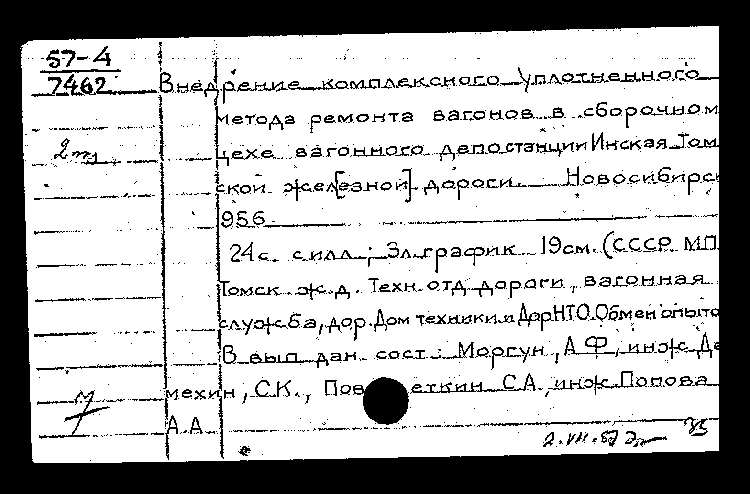 57-4
7462
Внедрение комплексного уплотненного
метода ремонта вагонов в сборочном
2 т
цехе вагонного депо станции Инская Том
ской жел[езной] дороги. Новосибирс
956
24 с. с илл.; 3 л. график 19 см. (СССР МП
Томск. ж.д. Техн. отд. дороги, вагонная
служба, дор. Дом техники и ДорНТО. Обмен опыто
В вып. дан. сост.: Моргун, А.Ф., инж. Де
мехин, С.К., Пов еткин С.А., инж. Попова
А.А
2.VII.57